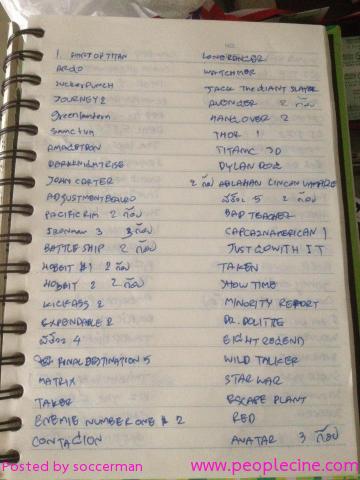 1. HAROFTITAN
ARGO
SUCKERPUNCH
JOURNEY 2
Greenlantern
Sanctum
AMAGETDON
DARKKNIGHTRISE
JOHN CARTER
ADJUSTMENTBEAUO
PACIFICRIM 2 กล่อง
IRONMAN 3 3 กล่อง
BATTLESHIP 2 กล่อง
HOBBIT #1 2 กล่อง
HOBBIT 2 2 กล่อง
KICKASS 2
EXPENDABLE 2
4
FINALDESTINATION 5
MATRIX
TAKER
ENEMIE NUMBER ONE # 2
CONTAGION
LONERANGER
WATCHMEN
JACK THE GIANT SLAYER
AVENGER 2 กล่อง
HANGOVER 2
THOR 1
TITANIC 3D
DYLAN DOG
2 กล่อง ABLAHAM LINCAN VAMPIRE
5 2 กล่อง
BAD TEACHER
CAPCAINAMERICAN 1
JUSTGOWITH IT
TAKEN
SHOWTIME
MINORITY REPORT
DR. DOLITTE
EIGHT REGEND
WILD TALKER
STAR WAR
ESCAPE PLANT
RED
AVATAR 3 กล่อง
Posted by soccerman
www.peoplecine.com